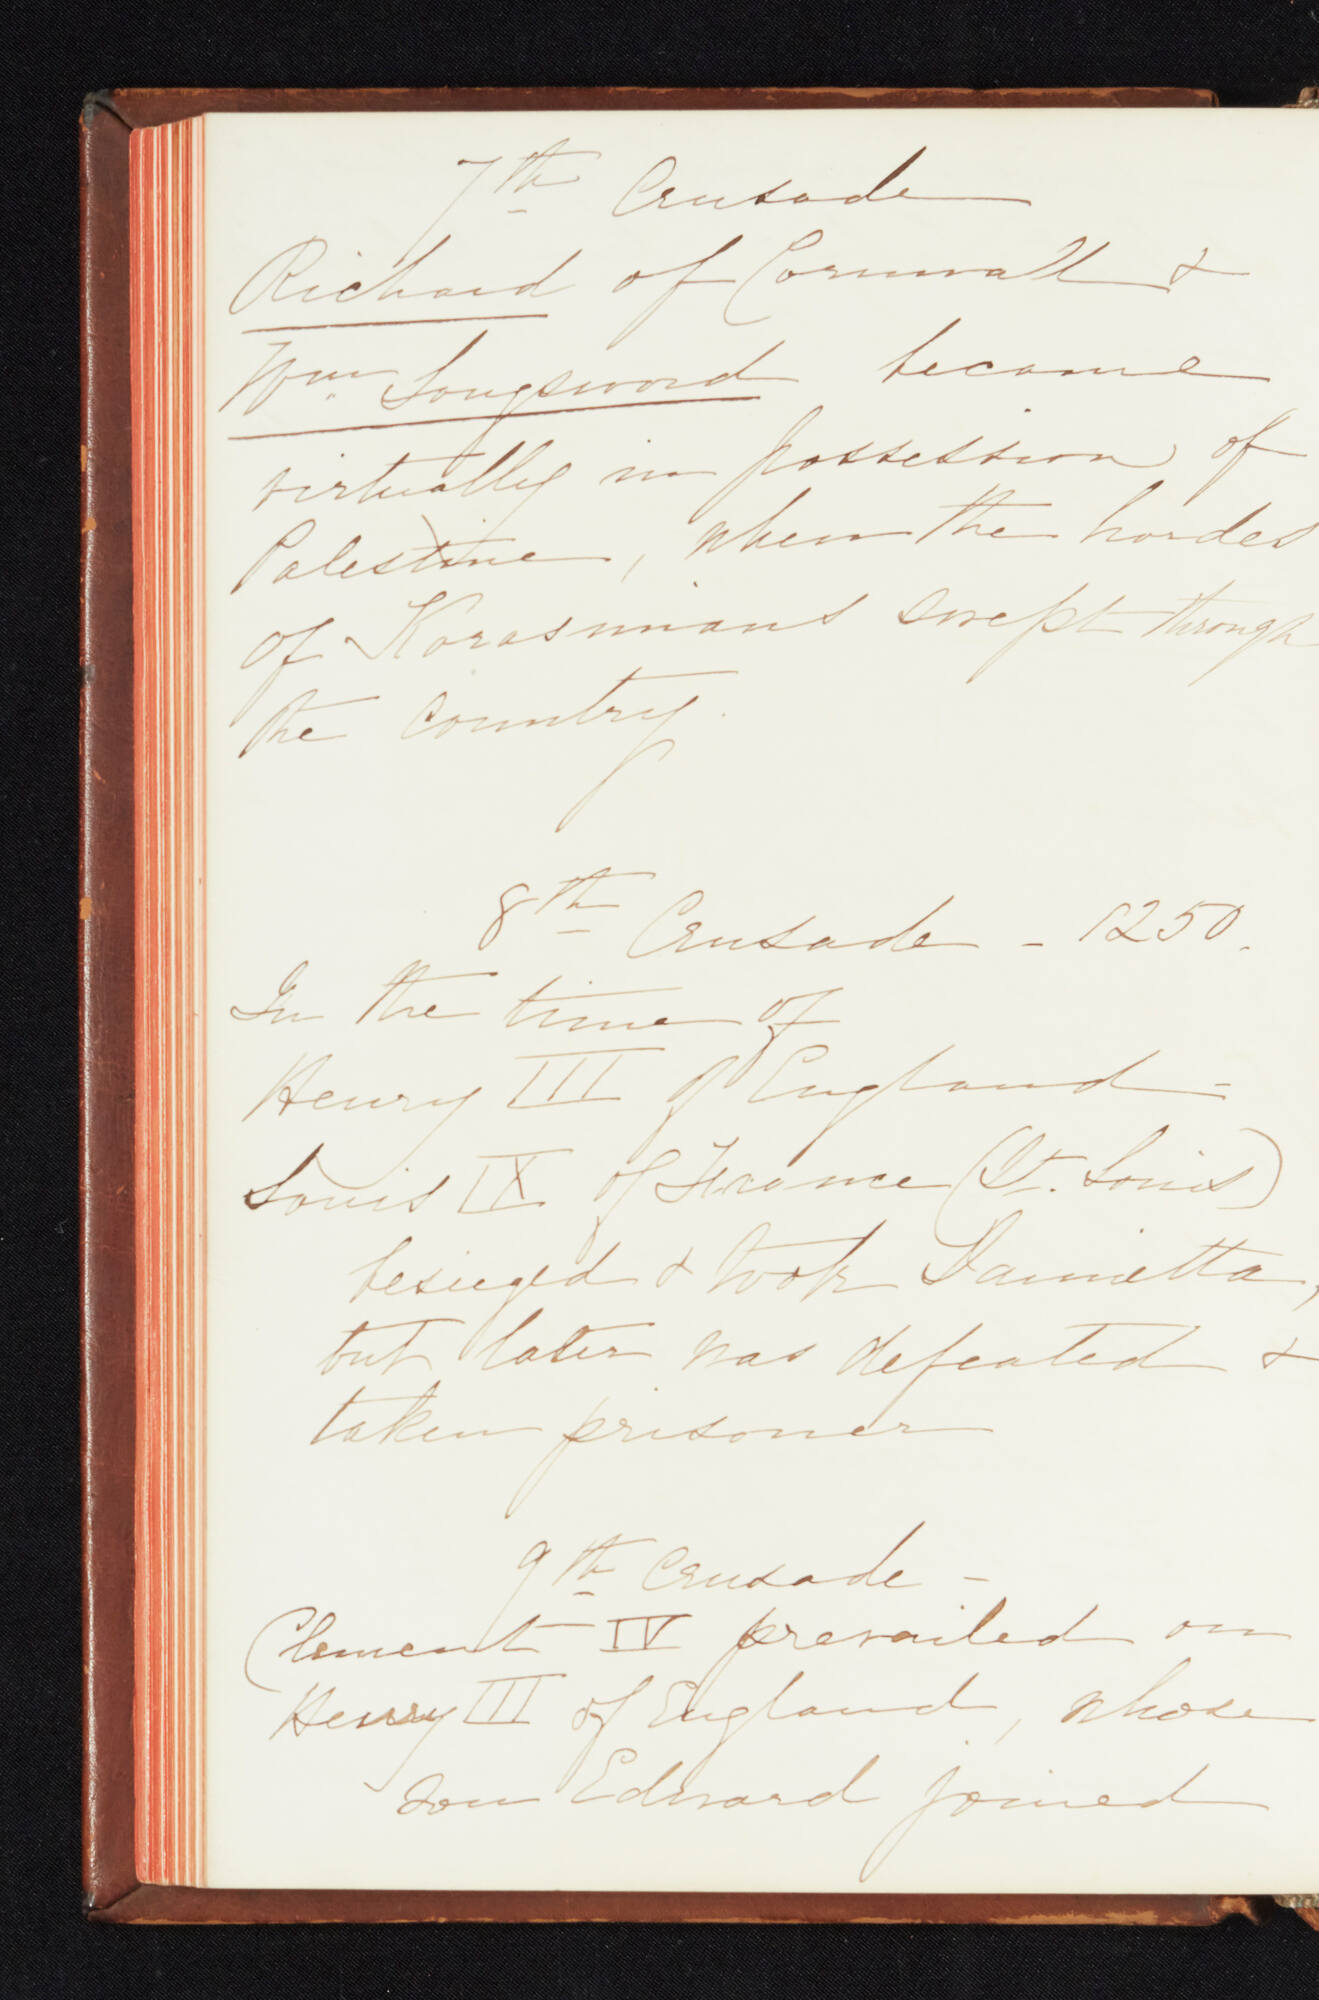 7th Crusade
Richard of Cornwall &
Wm. Longsword became
virtually in possession of
Palestine, when the hordes
of Korasmians swept through
the country.
8th Crusade - 1250.
In the time of
Henry III of England -
Louis IX of France (St. Louis)
besieged & took Damietta,
but later was defeated &
taken prisoner
9th Crusade -
Clement IV prevailed on
Henry III of England, whose
son Edward joined